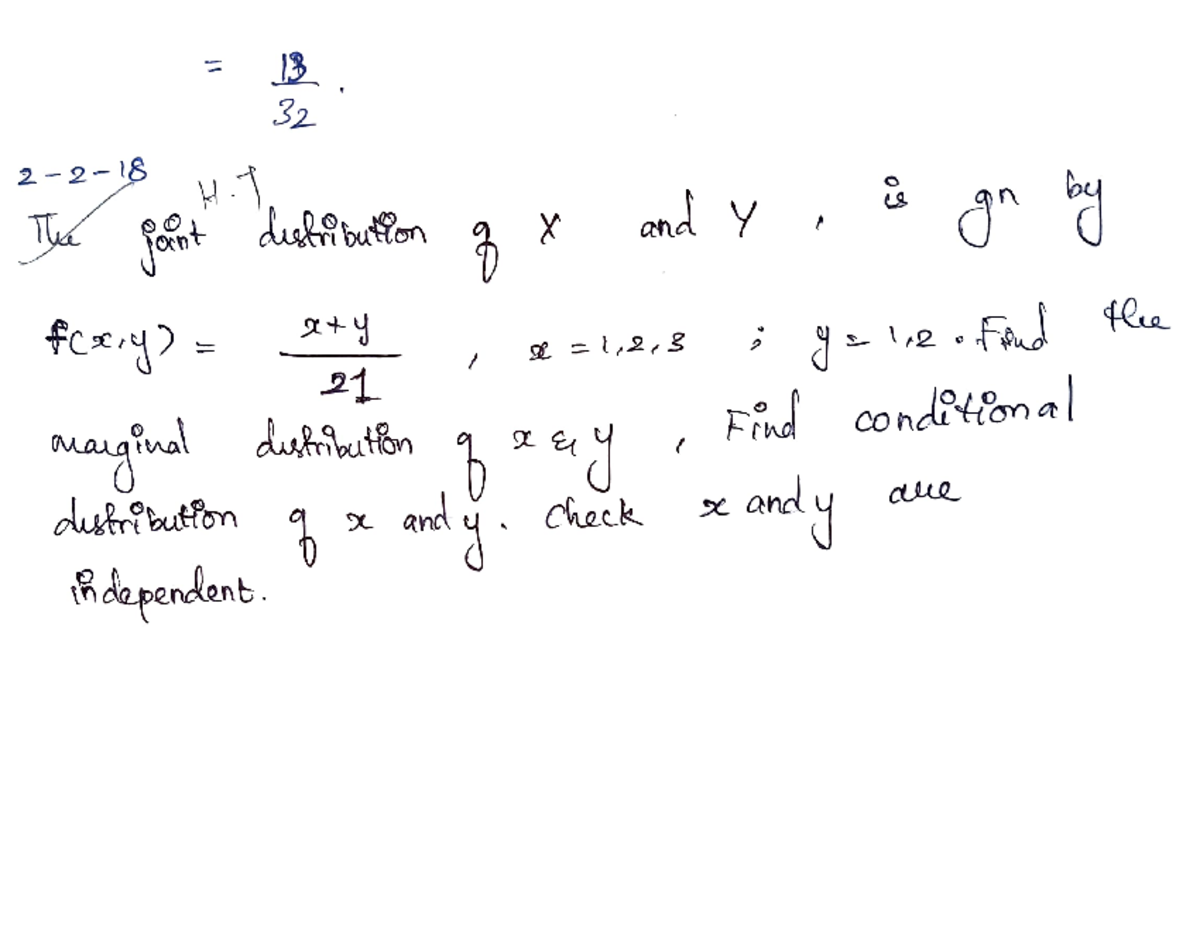 = 13/32 .
2-2-18
H.T
The joint distribution of X and Y , is gn by
f(x,y) = x+y/21 , x = 1,2,3 ; y = 1,2 . Find the
marginal distribution of x & y , Find conditional
distribution of x and y . Check x and y are
independent.